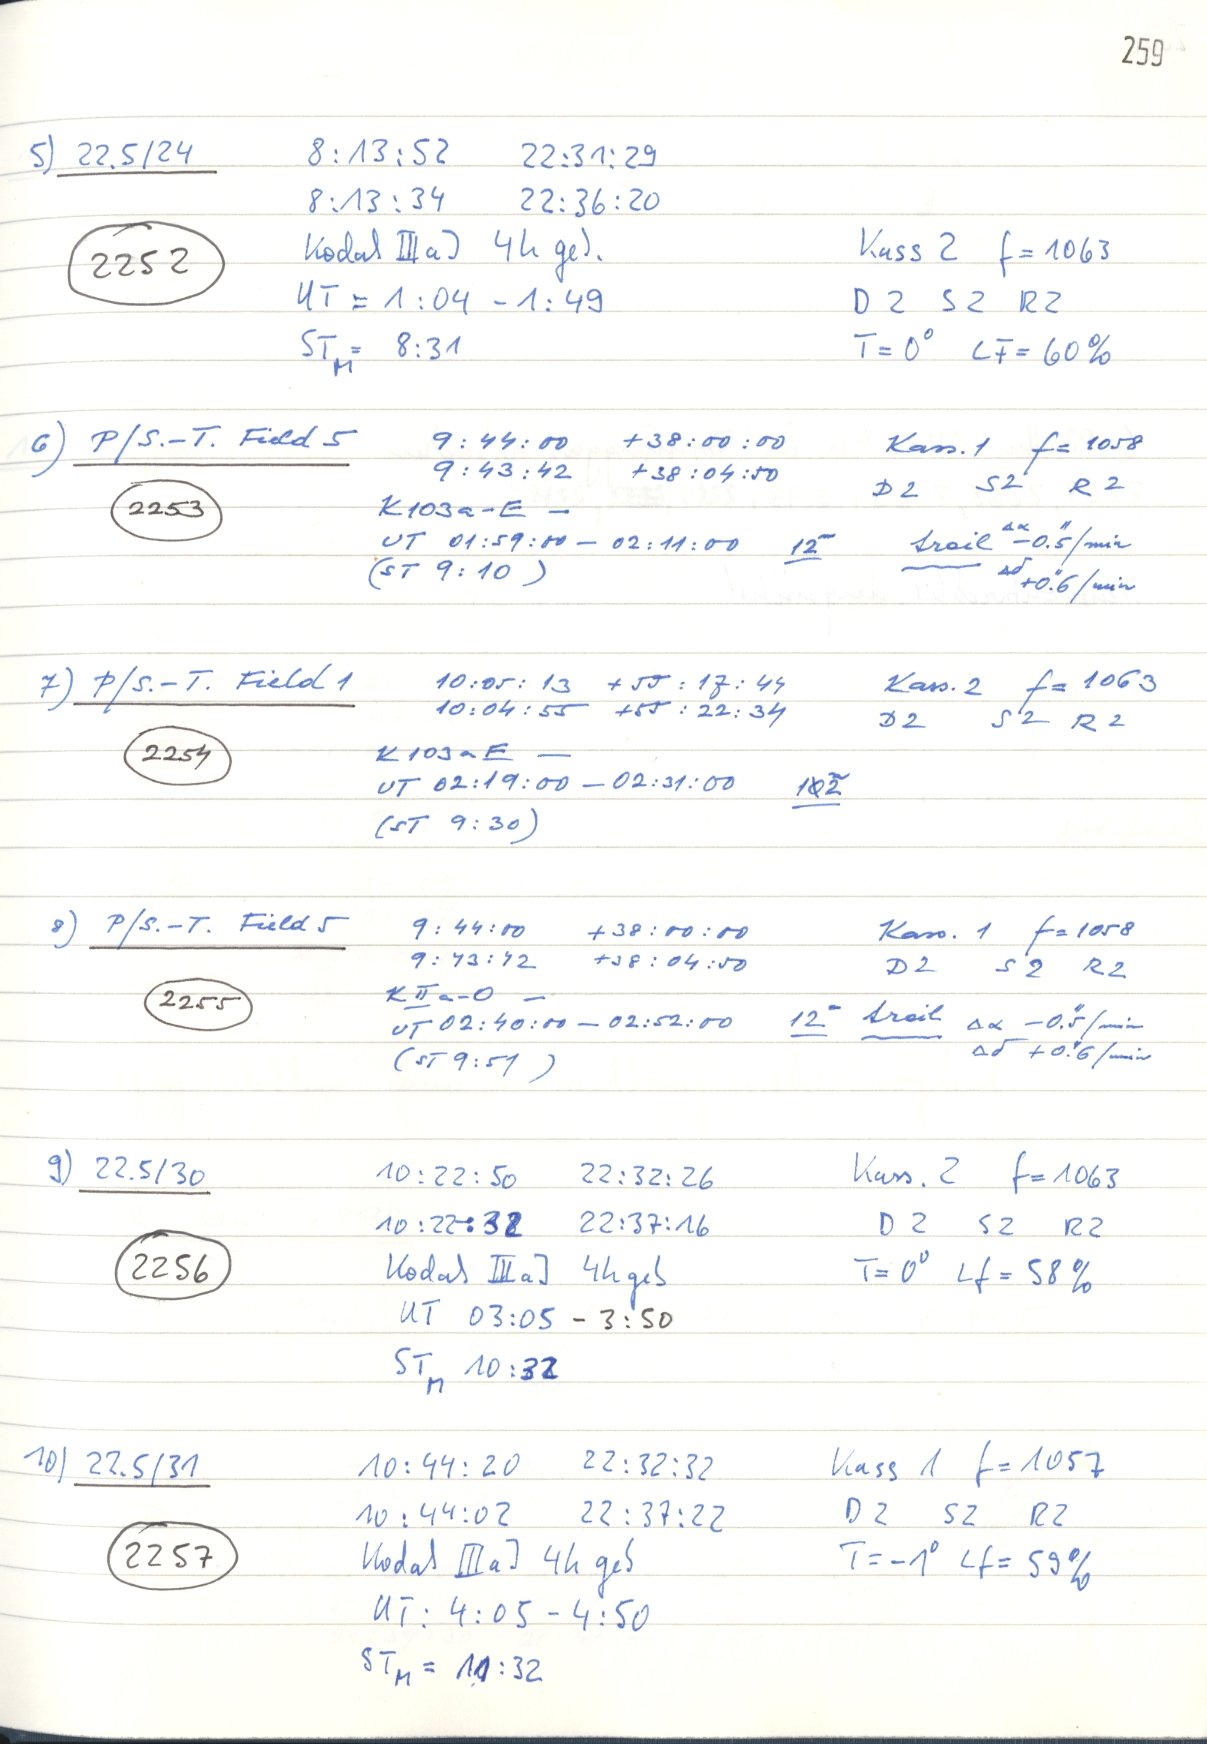 259
5) 22.5/24 8:13:52 22:31:29
8:13:34 22:36:20
2252 Kodak IIIaJ 4h geb. Kass 2 f=1063
UT = 1:04 - 1:49 D2 S2 R2
ST_M = 8:31 T=0° LF=60%
6) P/S.-T. Field 5 9:44:00 +38:00:00 Kass.1 f=1058
9:43:42 +38:04:50 D2 S2 R2
2253 K103a-E —
UT 01:59:00 - 02:11:00 12m trail Δα -0".5/min
(ST 9:10) Δδ +0".6/min
7) P/S.-T. Field 1 10:05:13 +55:17:44 Kass.2 f=1063
10:04:55 +55:22:34 D2 S2 R2
2254 K103aE —
UT 02:19:00 - 02:31:00
(ST 9:30)
8) P/S.-T. Field 5 9:44:00 +38:00:00 Kass.1 f=1058
9:43:42 +38:04:50 D2 S2 R2
2255 KIIa-O —
UT 02:40:00 - 02:52:00 12m trail Δα -0".5/min
(ST 9:51) Δδ +0".6/min
9) 22.5/30 10:22:50 22:32:26 Kass.2 f=1063
10:22:32 22:37:16 D2 S2 R2
2256 Kodak IIIaJ 4h geb T=0° Lf=58%
UT 03:05 - 3:50
ST_M 10:32
10) 22.5/31 10:44:20 22:32:32 Kass 1 f=1057
10:44:02 22:37:22 D2 S2 R2
2257 Kodak IIIaJ 4h geb T=-1° Lf=59%
UT: 4:05 - 4:50
ST_M = 11:32